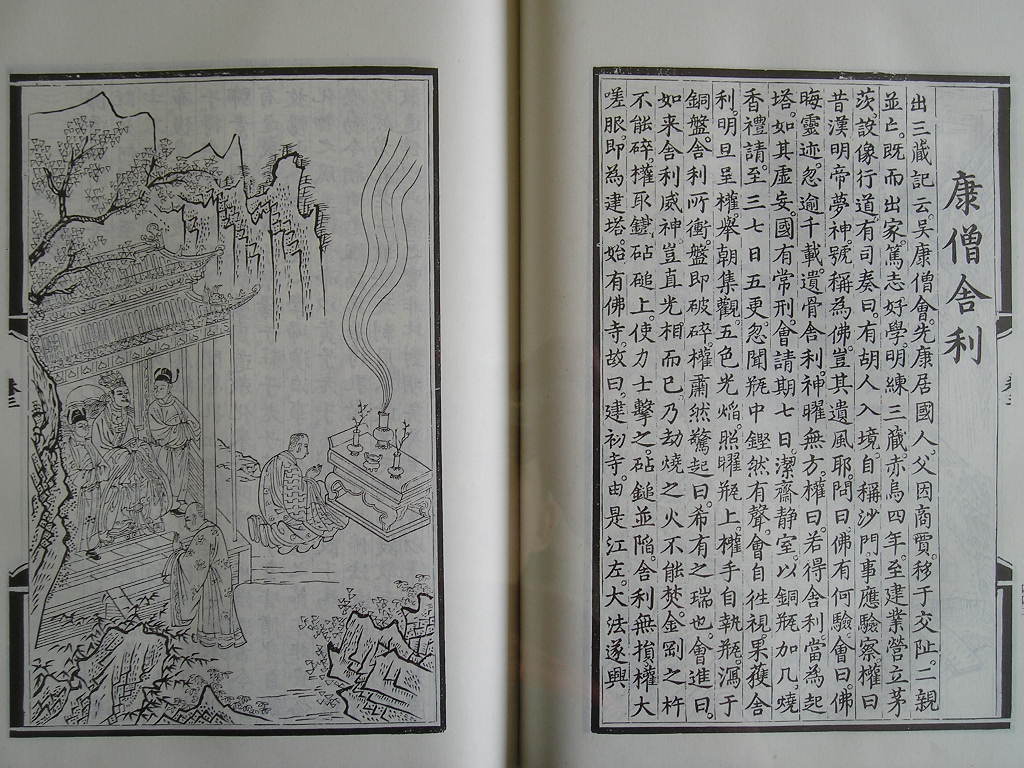 康僧舍利
出三藏記云。吴康僧會。先康居國人。父因商賈。移于交阯。二親
並亡。既而出家。篤志好學。明練三藏。赤烏四年。至建業。營立茅
茨。設像行道。有司奏曰。有胡人入境。自稱沙門。事應驗察。權曰
昔漢明帝夢神。號稱為佛。豈其遺風耶。問曰。佛有何驗。會曰佛
晦靈迹。忽逾千載。遺骨舍利。神曜無方。權曰。若得舍利。當為起
塔。如其虛妄。國有常刑。會請期七日。潔齋静室。以銅瓶加几。燒
香禮請。至三七日五更。忽聞瓶中鏗然有聲。會自往視。果獲舍
利。明旦呈權。舉朝集觀。五色光焰。照曜瓶上。權手自執瓶。瀉于
銅盤。舍利所衝。盤即破碎。權肅然驚起曰。希有之瑞也。會進曰。
如来舍利威神。豈直光相而已。乃劫燒之火不能焚。金剛之杵
不能碎。權取鐵砧鎚上。使力士擊之。砧鎚並陷。舍利無損。權大
嗟服。即為建塔。始有佛寺。故曰。建初寺。由是江左。大法遂興